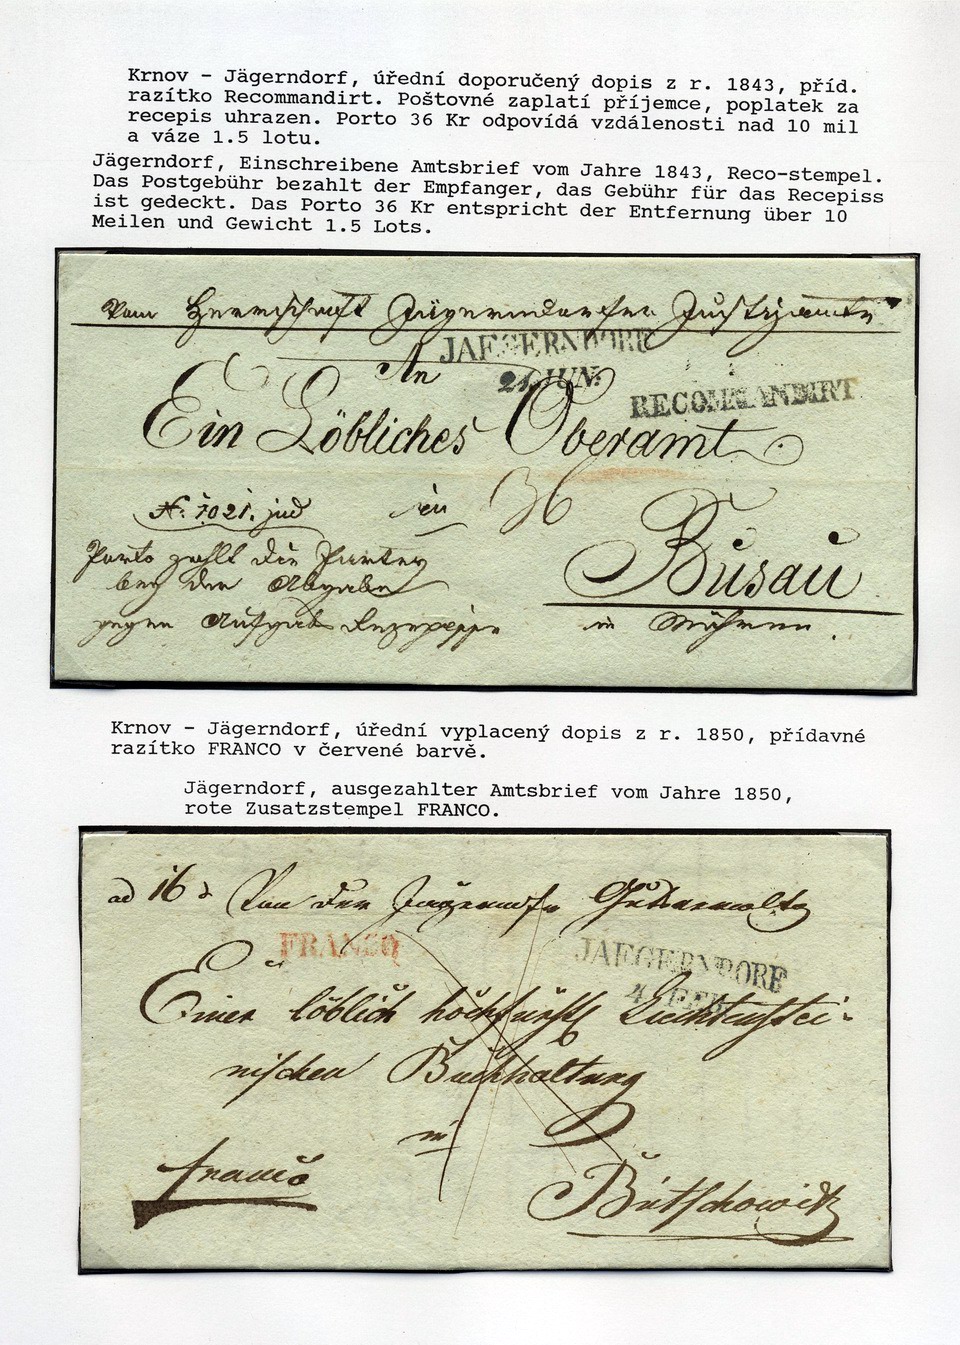 Krnov - Jägerndorf, úřední doporučený dopis z r. 1843, příd.
razítko Recommandirt. Poštovné zaplatí příjemce, poplatek za
recepis uhrazen. Porto 36 Kr odpovídá vzdálenosti nad 10 mil
a váze 1.5 lotu.
Jägerndorf, Einschreibene Amtsbrief vom Jahre 1843, Reco-stempel.
Das Postgebühr bezahlt der Empfanger, das Gebühr für das Recepiss
ist gedeckt. Das Porto 36 Kr entspricht der Entfernung über 10
Meilen und Gewicht 1.5 Lots.
Vom Herrschaft Jägerndorfer Justizamte
JAEGERNDORF
An
21. JUN:
RECOMMANDIRT
Ein Löbliches Oberamt
36
N: 1021. jud in
Busau
Porto zahlt die Partey
bey der Abgabe
gegen Aufgabs Rezepisse in Mähren.
Krnov - Jägerndorf, úřední vyplacený dopis z r. 1850, přídavné
razítko FRANCO v červené barvě.
Jägerndorf, ausgezahlter Amtsbrief vom Jahre 1850,
rote Zusatzstempel FRANCO.
ad 16 Von der
FRANCO
JAEGERNDORF
4. FEB
Einer löblich hochfürstl Liechtenstei-
nischen Buchhaltung
in
franco
Butschowitz